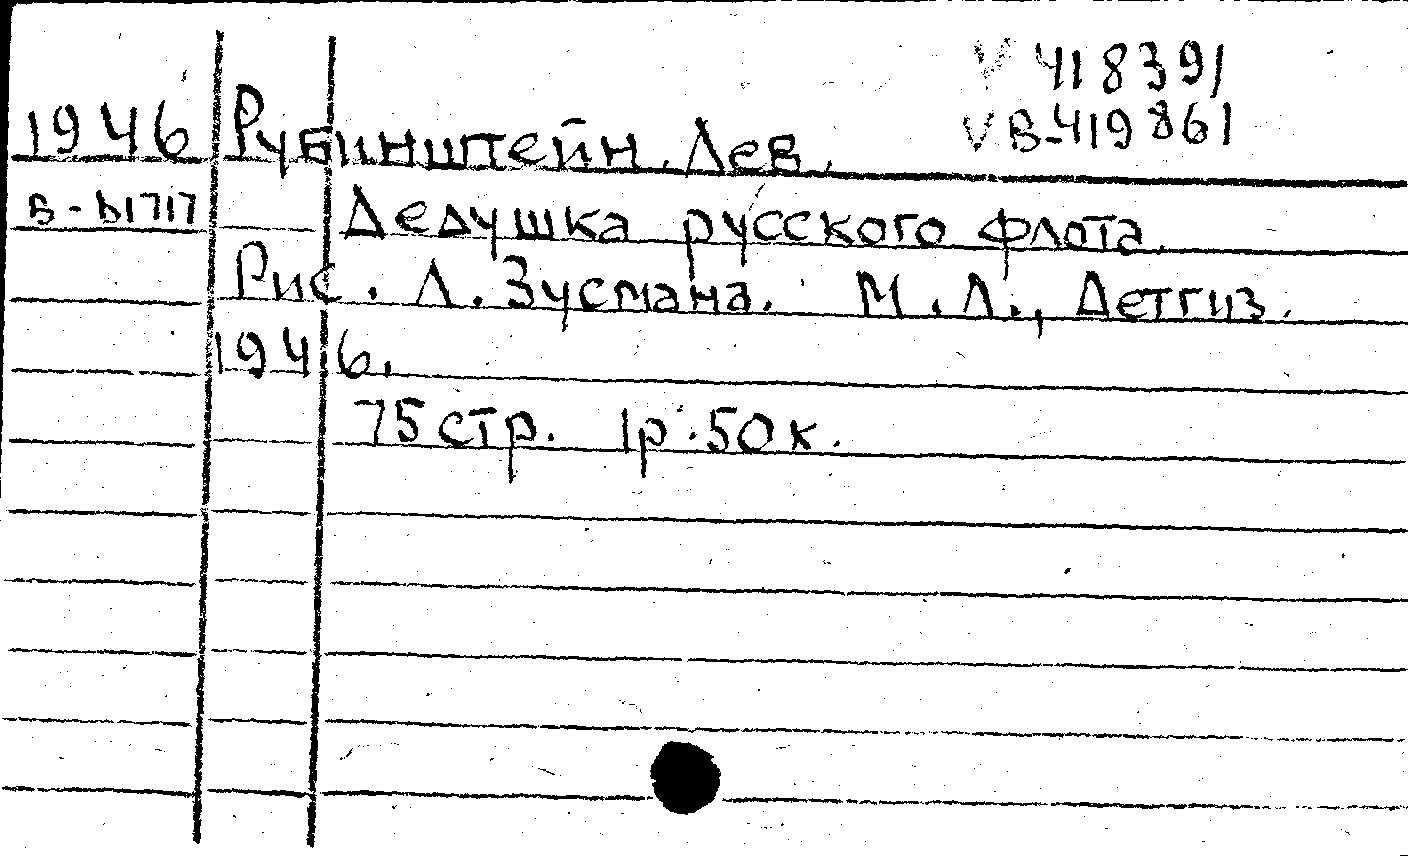 V 41839/
V В-419861
1946 Рубинштейн, Лев.
Дедушка русского флота.
Рис. Л. Зусмана. М.Л., Детгиз.
1946.
75 стр. 1р.50к.